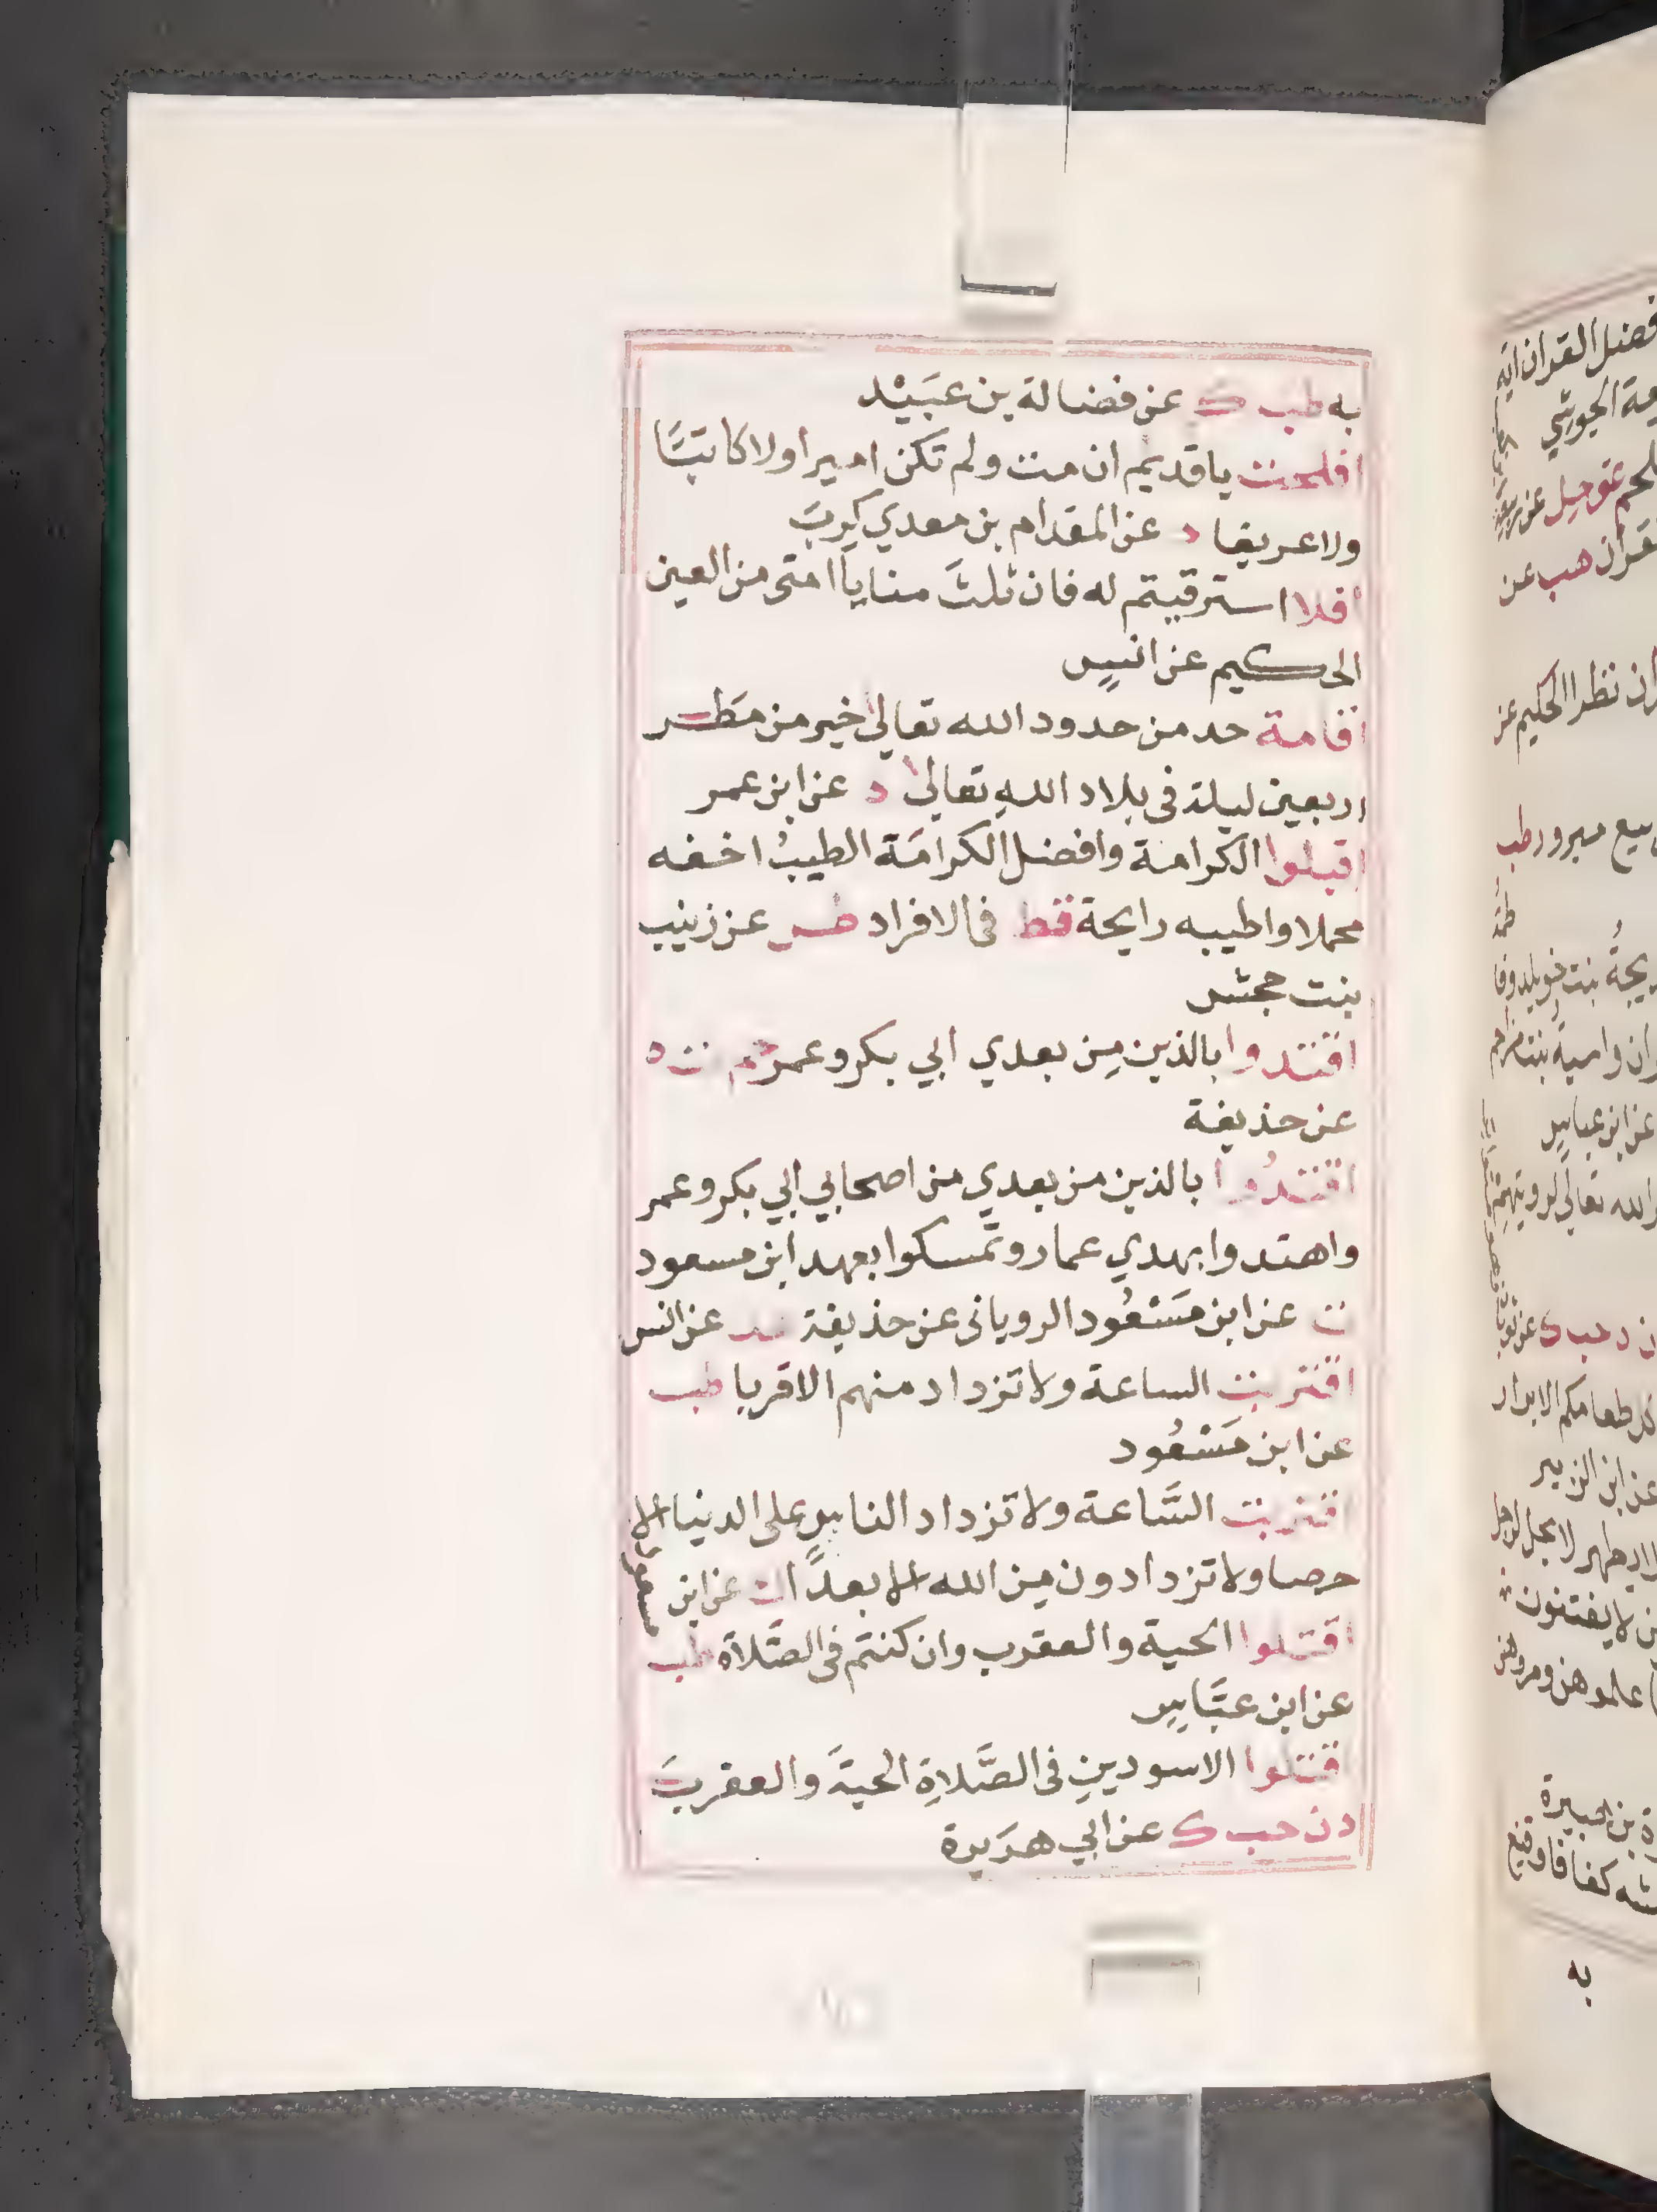 به طب ك عن فضالة بن عبَيْد
افلحت ياقديم ان مت ولم تكن اميرا ولا كاتبًا
ولا عريفا د عن المقدام بن معدي كربَ
افلا استرقيتم له فان ثلثَ منايا امتى من العين
الحكيم عن انسٍ
اقامة حد من حدود الله تعالى خير من مَطر
اربعين ليلة فى بلاد اللهِ تعالى ه عن ابن عمر
اقبلوا الكرامة وافضل الكرامَة الطيبُ اخفه
محملا واطيبه رايحة قط فى الافراد طس عن زينب
بنت جحش
اقتدوا بالذين مِن بعدي ابي بكر وعمر حم ت ه
عن حذيفة
اقتدُوا بالذين من بعدي من اصحابي ابي بكر وعمر
واهتدوا بهدي عمار وتمسكوا بعهد ابن مسعود
ت عن ابن مَسْعُود الرويانى عن حذيفة عد عن انس
اقتربت الساعة ولا تزداد منهم الا قربا طب
عن ابن مَسْعُود
اقتربت السَّاعة ولا تزداد الناس على الدنيا الا
حرصا ولا تزدادون مِن الله الا بعدًا ك عن ابن مسعود
اقتلوا الحية والعقرب وان كنتم فى الصَّلاة طب
عن ابن عبَّاسٍ
اقتلوا الاسودينِ فى الصَّلاةِ الحيةَ والعقربَ
د ت حب ك عن ابي هرَيرة
فضل القران اية
القران هب عن
بيع مبرور طب
عن ابن عباسٍ
ن ه حب ك عن ثوبان
طعامكم الابرار
عن ابن الزبير
به